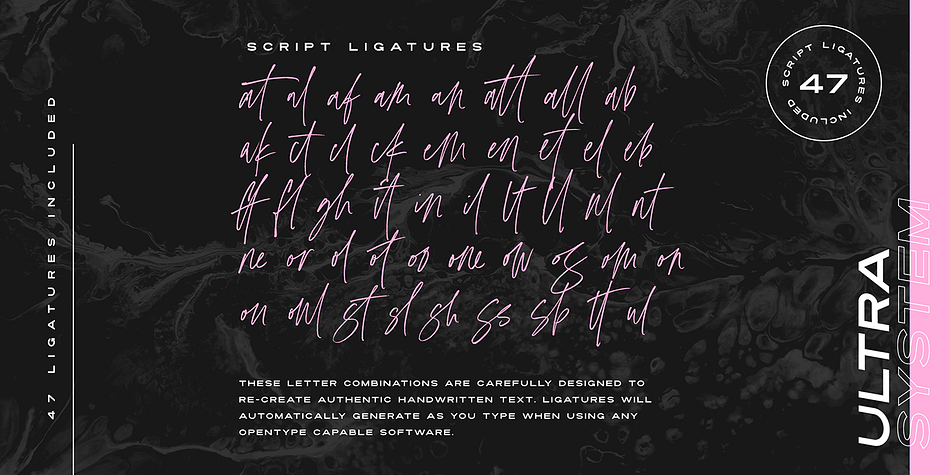 SCRIPT LIGATURES
at al af am an att all ab
ak ct cl ck em en et el eb
ff fl gh it in il lt ll nl nt
ne or ol ot oo one ow os om on
on oul st sl sh ss sb tt ul
THESE LETTER COMBINATIONS ARE CAREFULLY DESIGNED TO
RE-CREATE AUTHENTIC HANDWRITTEN TEXT. LIGATURES WILL
AUTOMATICALLY GENERATE AS YOU TYPE WHEN USING ANY
OPENTYPE CAPABLE SOFTWARE.
47 LIGATURES INCLUDED
SCRIPT LIGATURES INCLUDED
47
ULTRA
SYSTEM